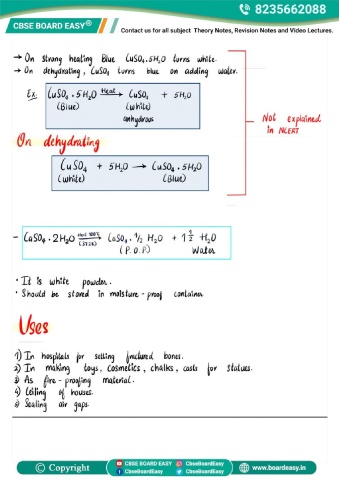 8235662088
CBSE BOARD EASY®
Contact us for all subject Theory Notes, Revision Notes and Video Lectures.
→ On strong heating Blue CuSO₄.5H₂O turns white.
→ On dehydrating, CuSO₄ turns blue on adding water.
Ex. CuSO₄ • 5H₂O Heat→ CuSO₄ + 5H₂O
(Blue) (white)
anhydrous
Not explained
in NCERT
On dehydrating
CuSO₄ + 5H₂O → CuSO₄ • 5H₂O
(white) (Blue)
- CaSO₄ • 2H₂O Heat 100°C (373K)→ CaSO₄ • 1/2 H₂O + 1 1/2 H₂O
(P.O.P.) Water
• It is white powder.
• Should be stored in moisture-proof container
Uses
1) In hospitals for setting fractured bones.
2) In making toys, cosmetics, chalks, casts for statues.
3) As fire-proofing material.
4) Ceiling of houses.
5) Sealing air gaps.
© Copyright
CBSE BOARD EASY CbseBoardEasy
CbseBoardEasy CbseBoardEasy
www.boardeasy.in